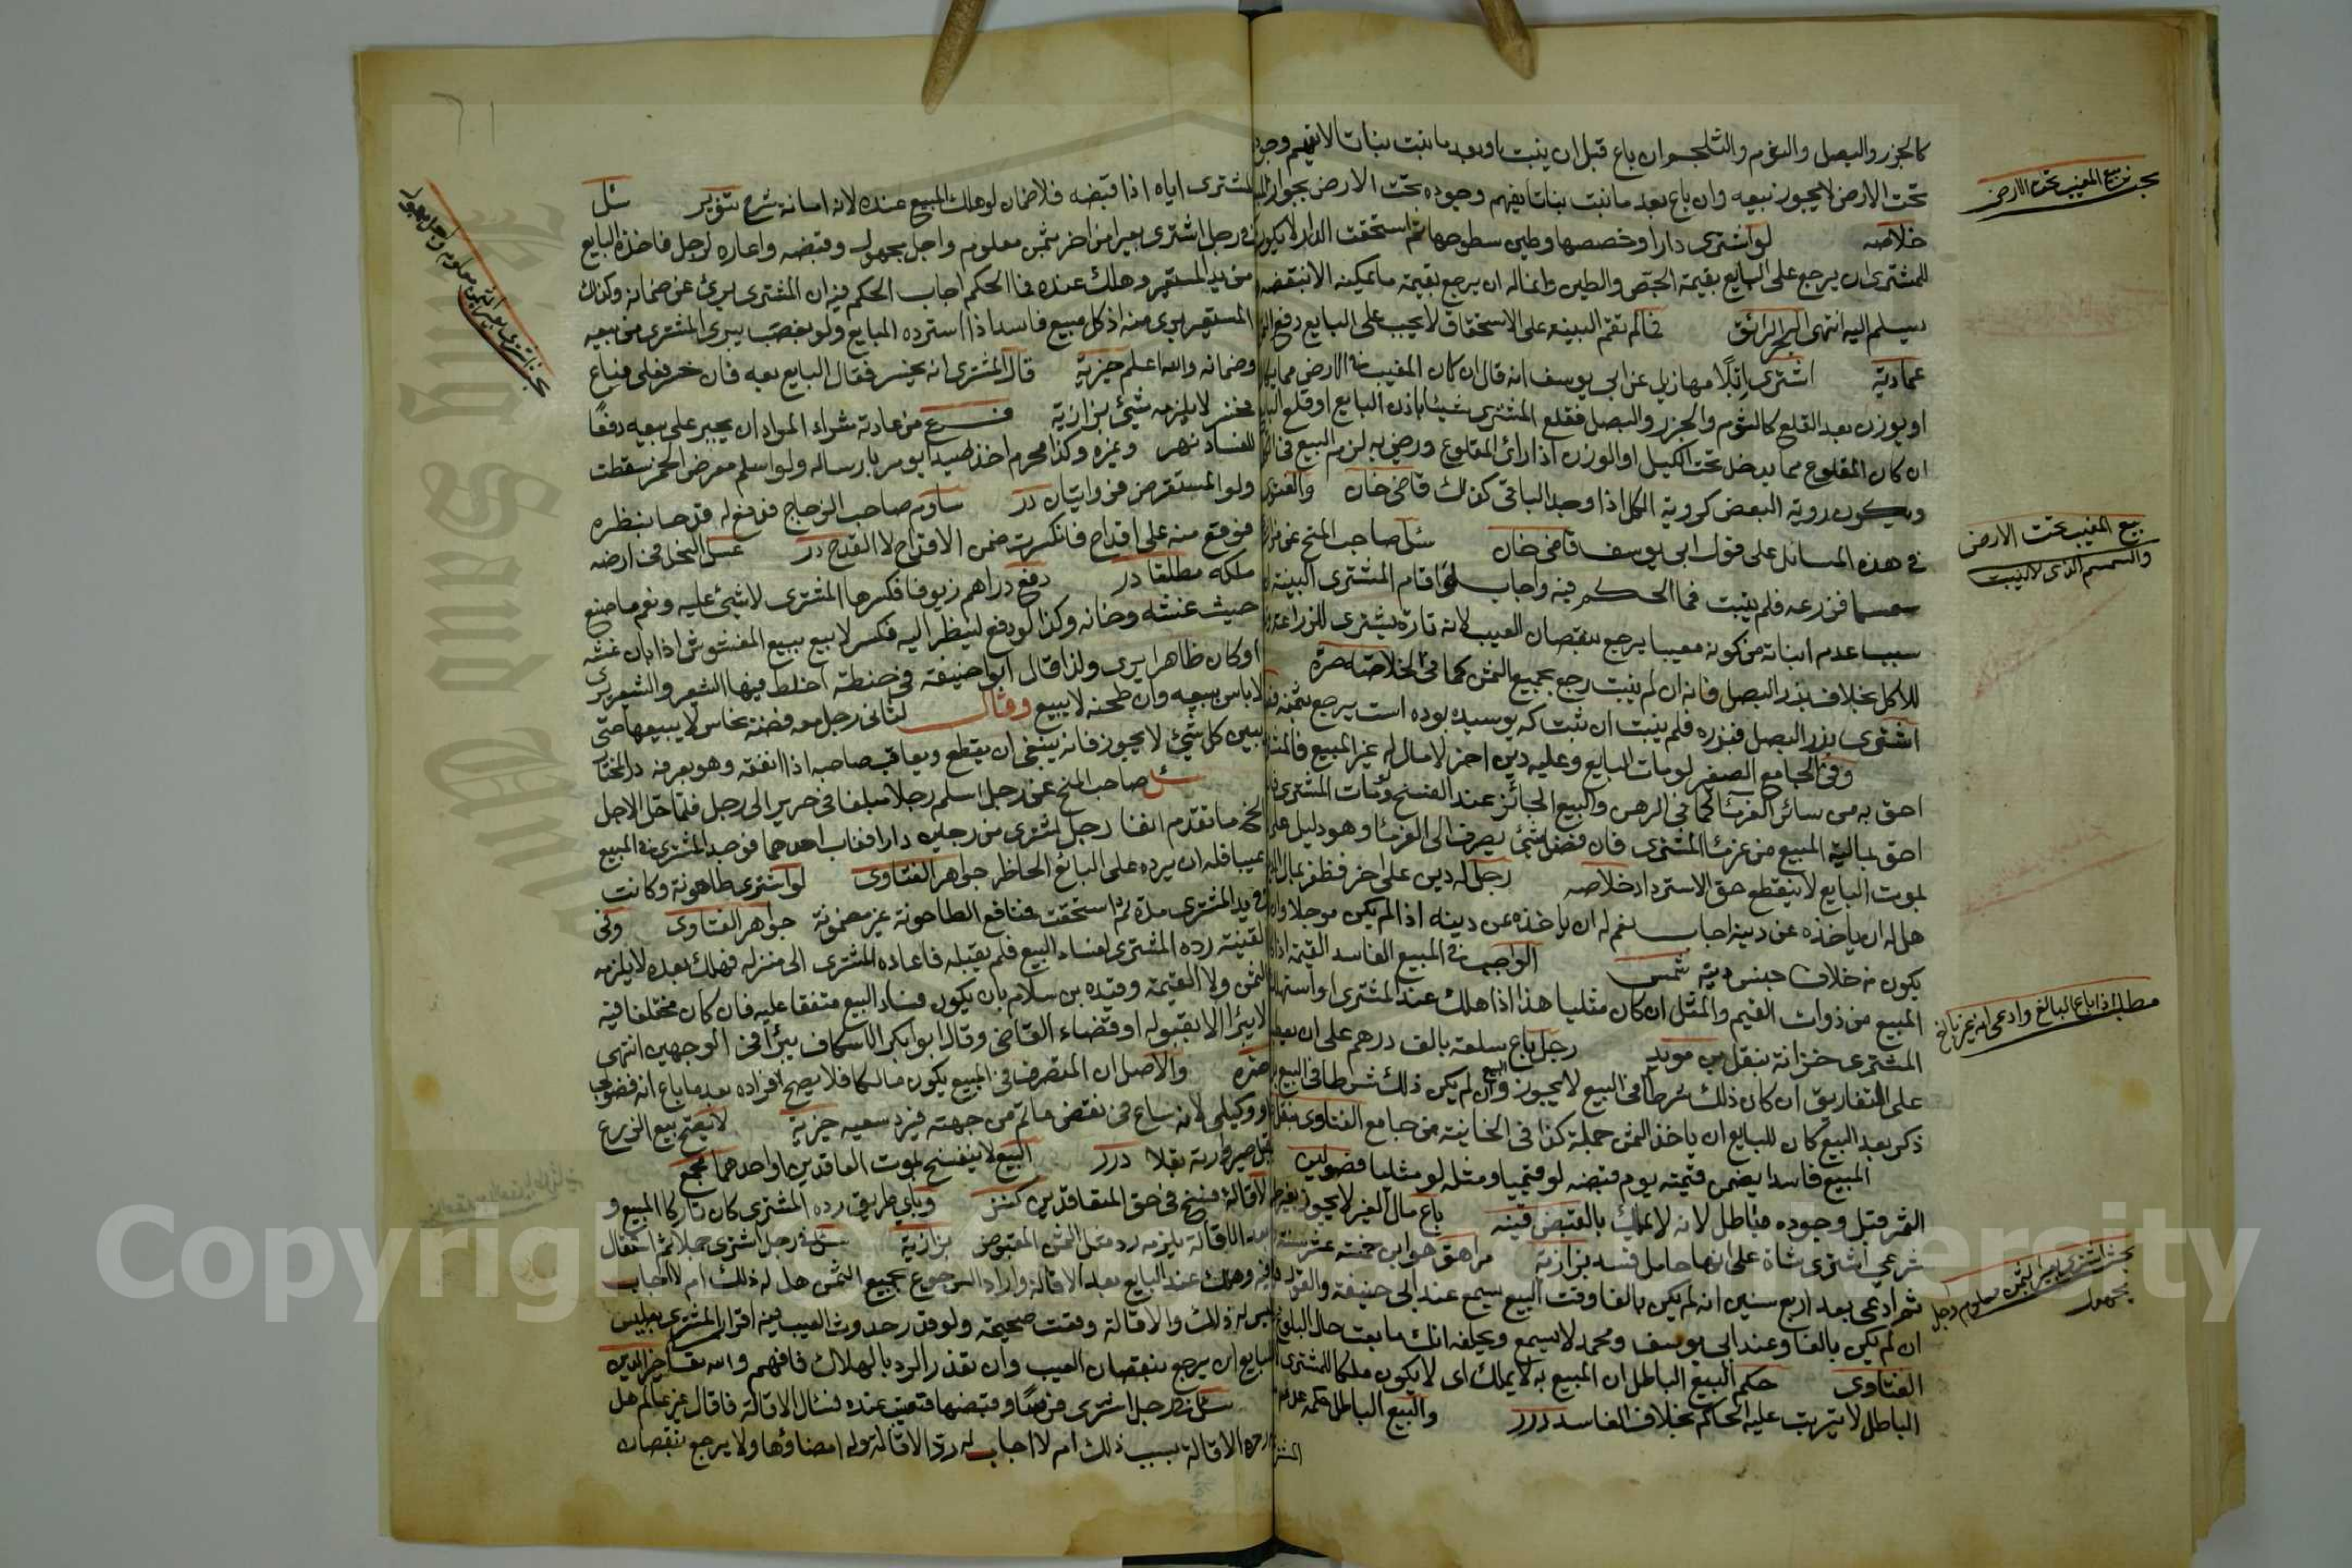 كالجزر والبصل والثوم والشلجم ان باع قبل ان ينبت او بعد ما نبت نباتا لا يفهم وجود
تحت الارض لا يجوز بيعه وان باع بعد ما نبت نباتا يفهم وجوده تحت الارض يجوز البيع
خلاصه لو اشترى دارا وخصصها وطين سطوحها ثم استحقت الدار لا يكون
للمشترى ان يرجع على البايع بقيمة الجص والطين وانما له ان يرجع بقيمة ما يمكنه ان ينقضه
يسلم اليه انتهى البحر الرائق فما لم تقم البينه على الاستحقاق لا يجب على البايع دفع
عماديه اشترى ابلا مهازيل عن ابى يوسف انه قال ان كان المغيب فى الارض مما يكال
او يوزن بعد القلع كالثوم والجزر والبصل فقلع المشترى شيئا باذن البايع او قلع البايع
ان كان المقلوع مما يدخل تحت الكيل او الوزن اذا راى المقلوع ورضي به لزم البيع فى
ويكون روية البعض كروية الكل اذا وجد الباقى كذلك قاضى خان والفتوى
فى هذه المسائل على قول ابى يوسف قاضى خان سئل صاحب المنح عن
سمسما فزرعه فلم ينبت فما الحكم فيه واجاب اذا اقام المشترى البينة
سببا عدم انباته من كونه معيبا يرجع بنقصان العيب لانه تارة يشترى للزراعة
للاكل بخلاف بذر البصل فانه ان لم ينبت رجع بجميع الثمن كما فى الخلاصة صرة
اشترى بزر البصل فبزره فلم ينبت ان ثبت كه پوسيده بوده است يرجع بثمنه
وفى الجامع الصغير لو مات البايع وعليه دين اخر لا مال له غير المبيع فالمشترى
احق به من سائر الغرماء كما فى الرهن والبيع الجائز عند الفسخ ولو مات المشترى
احق بمالية المبيع من غرماء المشترى فان فضل شئ يصرف الى الغرماء وهو دليل على
بموت البايع لا ينقطع حق الاسترداد خلاصه رجل له دين على اخر فظفر بمال
هل له ان ياخذه عن دينه اجاب نعم له ان ياخذه عن دينه اذا لم يكن موجلا
يكون من خلاف جنس دينه شمس الواجب فى المبيع الفاسد القيمة اذا
المبيع من ذوات القيم والمثل ان كان مثليا هذا اذا هلك عند المشترى او استهلكه
المشترى خزانة بنقل بن مويد رجل باع سلعة بالف درهم على ان
على التفاريق ان كان ذلك شرطا فى البيع لا يجوز البيع وان لم يكن ذلك شرطا فى البيع
ذكر بعد البيع كان للبايع ان ياخذ الثمن جملة كذا فى الخانية من جامع الفتاوى
المبيع فاسدا يضمن قيمته يوم قبضه لو قيميا ومثله لو مثليا فصولين
الثمر قبل وجوده فباطل لانه لا يملك بالقبض قنيه باع مال الغير لا يجوز
شرعي اشترى شاة على انها حامل فسد بزازية مراهق هو ابن خمسة عشر سنة
ثم ادعى بعد اربع سنين انه لم يكن بالغا وقت البيع يسمع عند ابى حنيفة والقول
ان لم يكن بالغا وعند ابى يوسف ومحمد لا يسمع ويحلفه انك ما بعت حال البلوغ
الفتاوى حكم البيع الباطل ان المبيع به لا يملك اى لا يكون ملكا للمشترى
الباطل لا يترتب عليه الحاكم بخلاف الفاسد درر والبيع الباطل حكمه عدم
بحث بيع المغيب تحت الارض
بيع المغيب تحت الارض
والسمسم الذى لا ينبت
مطلب اذا باع البالغ وادعى انه غير بالغ
بحث اشترى بعيرا بثمن معلوم واجل
مجهول
المشترى اياه اذا قبضه فلا ضمان لو هلك المبيع عنده لانه امانة شرح تنوير سئل
فى رجل اشترى بعيرا من اخر بثمن معلوم واجل مجهول وقبضه واعاره لرجل فاخذه البايع
من يد المستعير وهلك عنده فما الحكم اجاب الحكم فيه ان المشترى برئ عن ضمانه وكذلك
المستعير برى منه اذ كل مبيع فاسدا اذا استرده البايع ولو بغصب يبرى المشترى من بيعه
وضمانه والله اعلم خيرية قال المشترى انه يخسر فقال البايع بعه فان خسر فعلي فباع
فخسر لا يلزمه شئ بزازية فرع من عادته شراء المراد ان يجبر على بيعه دفعا
للفساد نهر وغيره وكذا محرم اخذ صيدا يومر بارساله ولو اسلم مقرض الخمر سقطت
ولو المستقرض فروايتان درر ساوم صاحب الزجاج فدفع له قدحا ينظره
فوقع منه على اقداح فانكسرت ضمن الاقداح لا القدح درر عسل النحل فى ارضه
ملكه مطلقا در دفع دراهم زيوفا فكسرها المشترى لا شئ عليه ونعم ما صنع
حيث غشه وخانه وكذا لو دفع لينظر اليه فكسر لا بيع ببيع المغشوش اذا بان غشه
او كان ظاهرا يرى ولذا قال ابو حنيفة فى حنطة اختلط فيها الشعير والشعير يرى
لا باس ببيعه وان طحنه لا يبيع وقال الثانى رجل معه فضة نحاس لا يبيعها حتى
يبين كل شئ لا يجوز فانه ينبغى ان يقطع ويعاقب صاحبه اذا انفقه وهو يعرفه در المختار
سئل صاحب المنح عن رجل اسلم رجلا مبلغا فى حرير الى رجل فلما حل الاجل
الخ ما تقدم انفا رجل اشترى من رجلين دارا فغاب احدهما فوجد المشترى فى المبيع
عيبا فله ان يرده على البائع الحاظر جواهر الفتاوى لو اشترى طاحونة وكانت
فى يد المشترى مدة ثم استحقت فنافع الطاحونة غير مضمونة جواهر الفتاوى وفى
القنية رده المشترى لفساد البيع فلم يقبله فاعاده المشترى الى منزله فهلك بعده لا يلزمه
الثمن ولا القيمة وقيده بن سلام بان يكون فساد البيع متفقا عليه فان كان مختلفا فيه
لا يبرا الا بقبوله او قضاء القاضى وقال ابو بكر الاسكاف يبرأ فى الوجهين انتهى
صره والاصل ان المتصرف فى المبيع يكون مالكا فلا يصح اقراره بعد ما باع انه فضولى
او وكيلى لانه ساع فى نقض ما تم من جهته فيرد سعيه خيرية لا يصح بيع الزرع
قبل صيرورته بقلا درر البيع لا ينفسخ بموت العاقدين او احدهما مجمع
الاقالة فسخ فى حق المتعاقدين كنز وباي طريق رده المشترى كان تاركا المبيع و
بعد الاقالة يلزمه رد مثل الثمن المقبوض بزازية سئل فى رجل اشترى جملا ثم استقال
فيه وهلك عند البايع بعد الاقالة واراد الرجوع بجميع الثمن هل له ذلك ام لا اجاب
ليس له ذلك والاقالة وقعت صحيحة ولو قدر حدوث العيب فيه اقرار المشترى
البايع ان يرجع بنقصان العيب وان تعذر الرد بالهلاك فافهم والله تعالى خير الدين
سئل فى رجل اشترى فرسا وقبضها فتعيبت عنده فسئال الاقالة فاقال غير عالم هل
رده الاقالة بسبب ذلك ام لا اجاب له رد الاقالة وله امضاؤها ولا يرجع بنقصان
Copyright © King Saud University